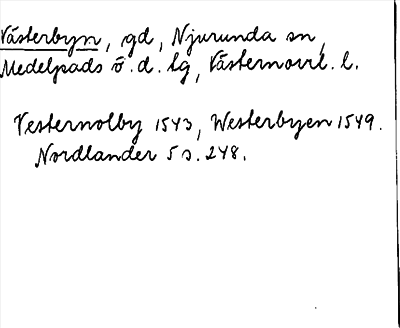 Västerbyn, gd, Njurunda sn,
Medelpads ö. d. tg, Västernorrl. l.
Vesternolby 1543, Westerbyen 1549.
Nordlander 5 s. 248.